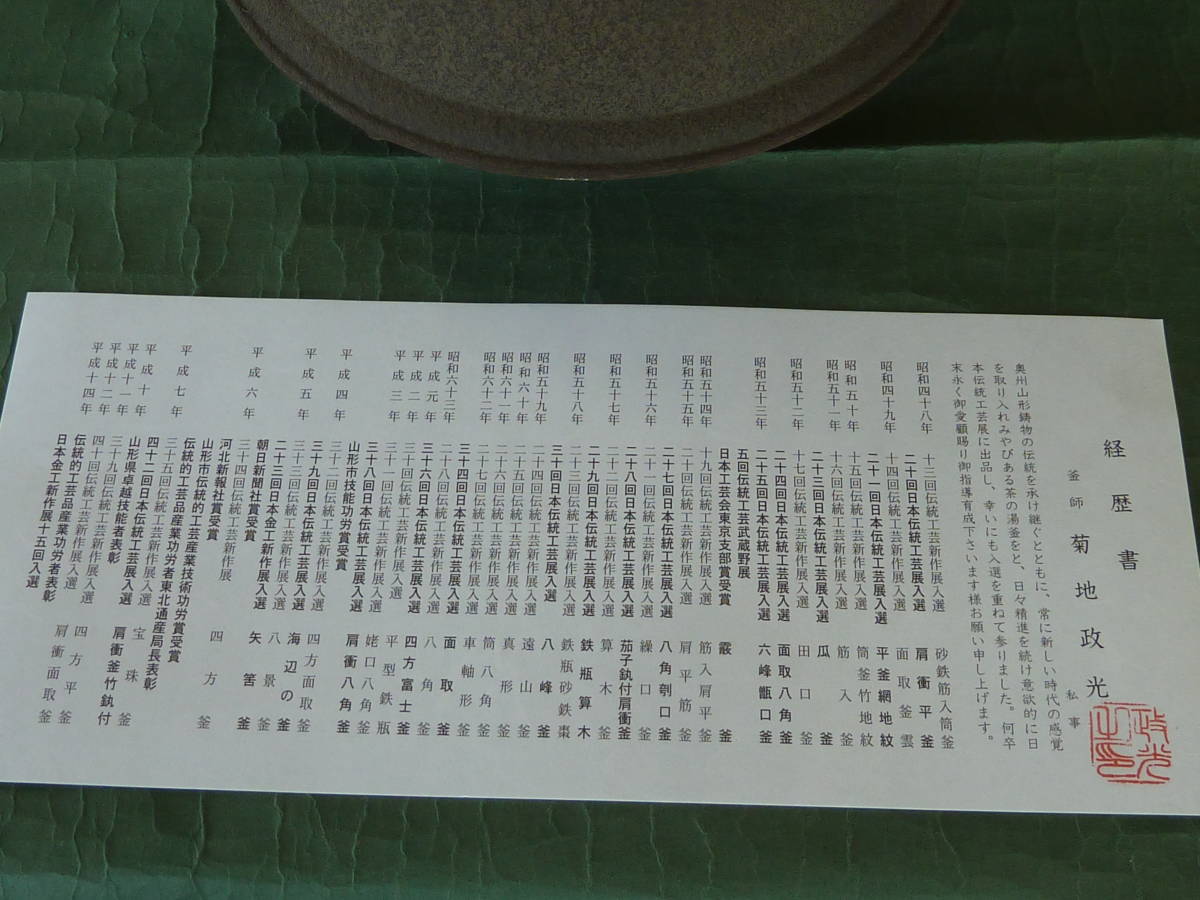 経歴書
釜師 菊地政光
私事
奥州山形鋳物の伝統を承け継ぐとともに、常に新しい時代の感覚
を取り入れみやびある茶の湯釜をと、日々精進を続け意欲的に日
本伝統工芸展に出品し、幸いにも入選を重ねて参りました。何卒
末永く御愛顧賜り御指導育成下さいます様お願い申し上げます。
昭和四十八年 十三回伝統工芸新作展入選 砂鉄筋入筒釜
二十回日本伝統工芸展入選 肩衝平釜
昭和四十九年 十四回伝統工芸新作展入選 面取釜雲
二十一回日本伝統工芸展入選 平釜網地紋
昭和五十年 十五回伝統工芸新作展入選 筒釜竹地紋
昭和五十一年 十六回伝統工芸新作展入選 筋入釜
二十三回日本伝統工芸展入選 瓜釜
昭和五十二年 十七回伝統工芸新作展入選 田口釜
二十四回日本伝統工芸展入選 面取八角釜
昭和五十三年 二十五回日本伝統工芸展入選 六峰甑口釜
五回伝統工芸武蔵野展
日本工芸会東京支部賞受賞 霰釜
昭和五十四年 十九回伝統工芸新作展入選 筋入肩平釜
昭和五十五年 二十回伝統工芸新作展入選 肩平筋釜
二十七回日本伝統工芸展入選 八角刳口釜
昭和五十六年 二十一回伝統工芸新作展入選 繰口釜
二十八回日本伝統工芸展入選 茄子釻付肩衝釜
昭和五十七年 二十二回伝統工芸新作展入選 算木釜
二十九回日本伝統工芸展入選 鉄瓶算木
昭和五十八年 二十三回伝統工芸新作展入選 鉄瓶砂鉄棗
三十回日本伝統工芸展入選 八峰釜
昭和五十九年 二十四回伝統工芸新作展入選 遠山釜
昭和六十年 二十五回伝統工芸新作展入選 真形釜
昭和六十一年 二十六回伝統工芸新作展入選 筒八角釜
昭和六十二年 二十七回伝統工芸新作展入選 車軸形釜
三十四回日本伝統工芸展入選 面取釜
昭和六十三年 二十八回伝統工芸新作展入選 八角釜
平成元年 三十六回日本伝統工芸展入選 四方富士釜
平成二年 三十回伝統工芸新作展入選 平型鉄瓶
平成三年 三十一回伝統工芸新作展入選 姥口八角釜
三十八回日本伝統工芸展入選 肩衝八角釜
山形市技能功労賞受賞
平成四年 三十二回伝統工芸新作展入選 四方面取釜
三十九回日本伝統工芸展入選 海辺の釜
平成五年 三十三回伝統工芸新作展入選 八景釜
二十三回日本金工新作展入選 矢筈釜
朝日新聞社賞受賞
平成六年 三十四回伝統工芸新作展 四方釜
河北新報社賞受賞
山形市伝統的工芸産業技術功労賞受賞
平成七年 伝統的工芸品産業功労者東北通産局長表彰
三十五回伝統工芸新作展入選 宝珠釜
四十二回日本伝統工芸展入選 肩衝釜竹釻付
平成十年 山形県卓越技能者表彰
平成十一年 三十九回伝統工芸新作展入選 四方平釜
平成十二年 四十回伝統工芸新作展入選 肩衝面取釜
伝統的工芸品産業功労者表彰
平成十四年 日本金工新作展十五回入選